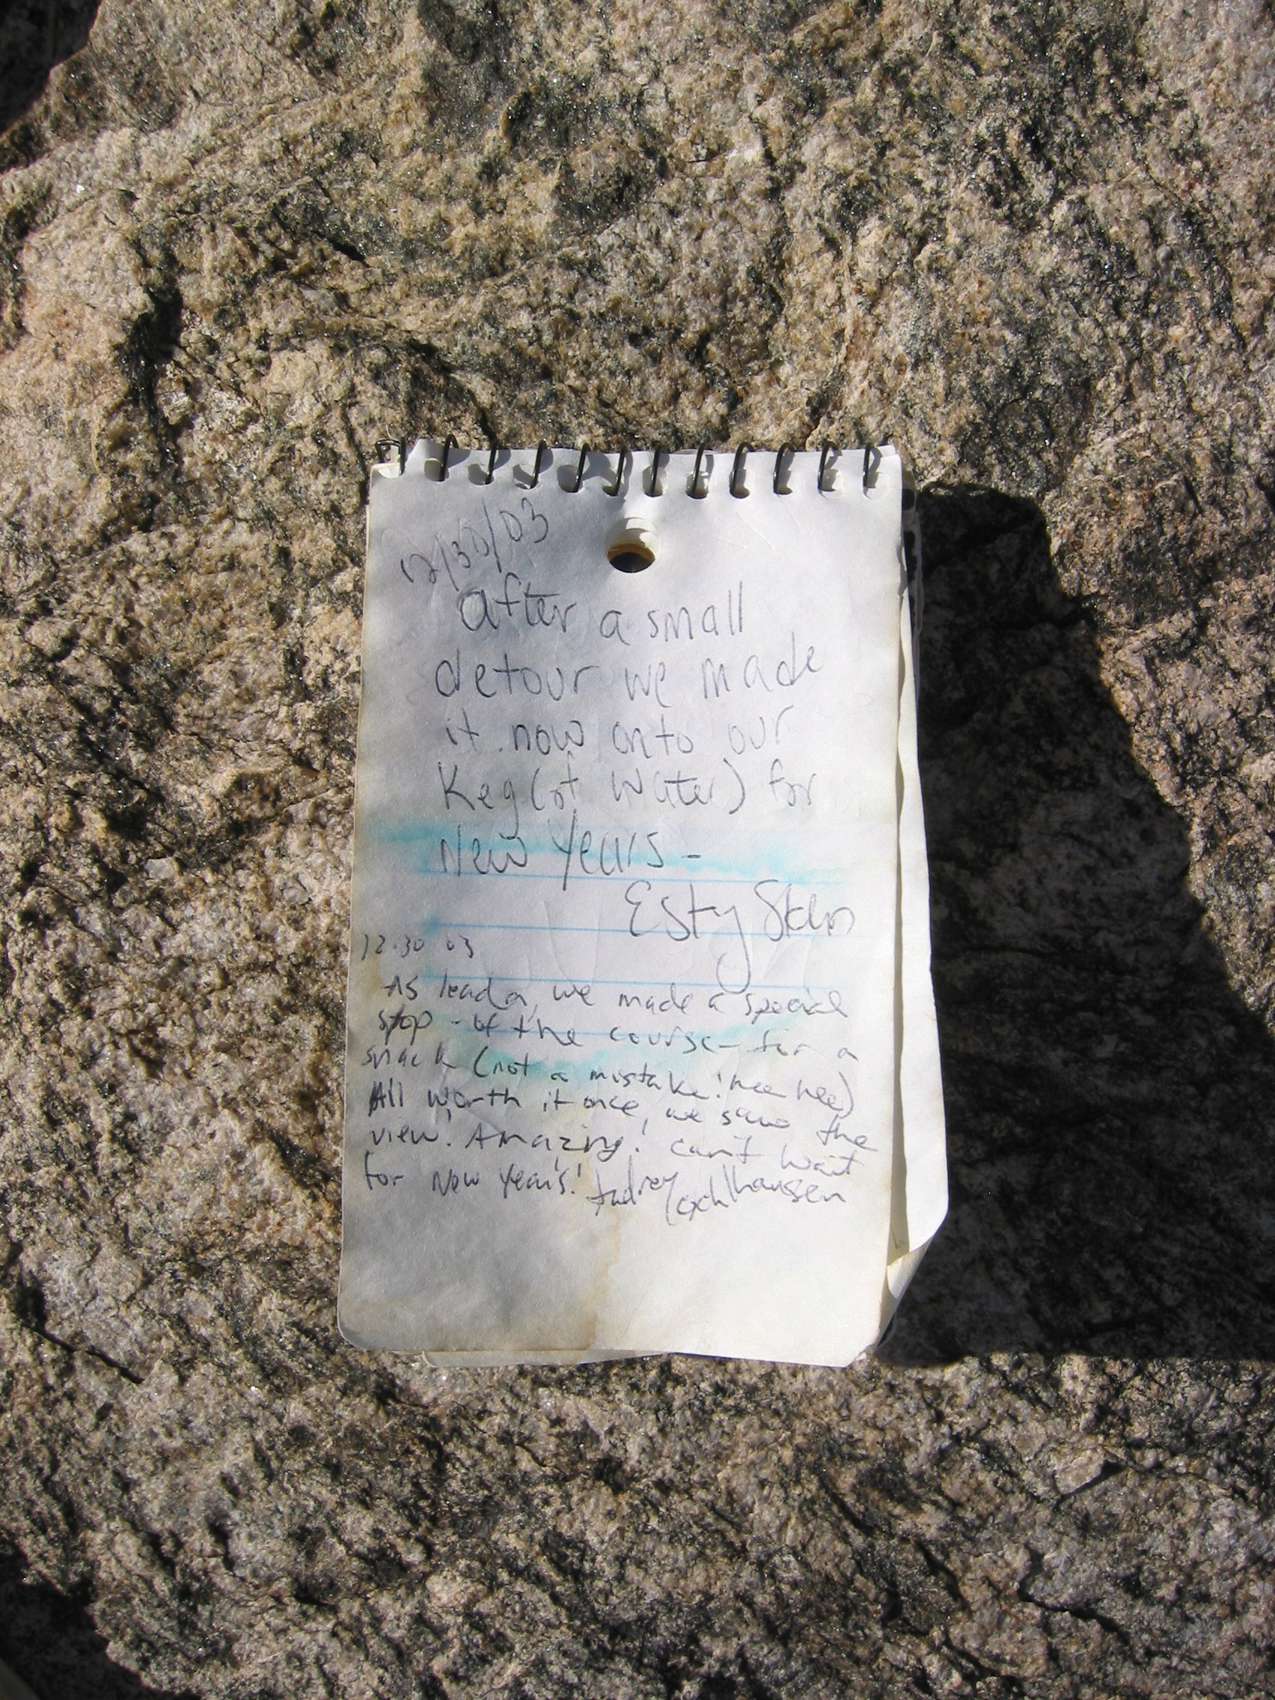 12/30/03
After a small
detour we made
it now onto our
Keg (of Water) for
New Years -
Esty
12.30 03
As leader, we made a special
stop - of the course - for a
snack (not a mistake! hee hee)
All worth it once, we saw the
view! Amazing! Can't wait
for New Years! Audrey